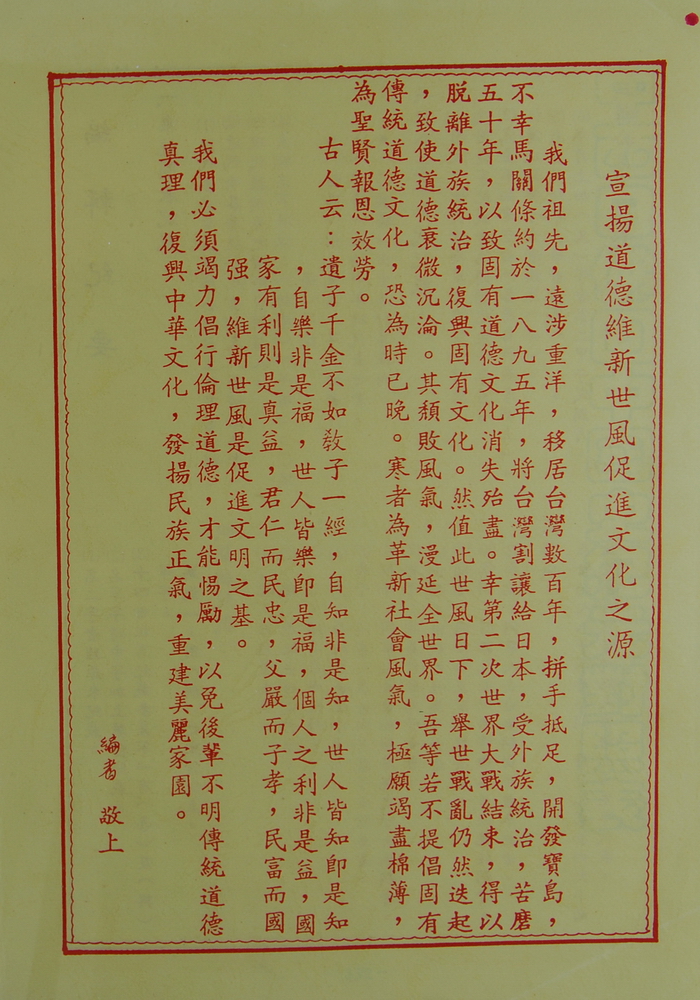 宣揚道德維新世風促進文化之源
我們祖先，遠涉重洋，移居台灣數百年，拼手抵足，開發寶島，
不幸馬關條約於一八九五年，將台灣割讓給日本，受外族統治，苦磨
五十年，以致固有道德文化消失殆盡。幸第二次世界大戰結束，得以
脫離外族統治，復興固有文化。然值此世風日下，舉世戰亂仍然迭起
，致使道德衰微沉淪。其頹敗風氣，漫延全世界。吾等若不提倡固有
傳統道德文化，恐為時已晚。寒者為革新社會風氣，極願竭盡棉薄，
為聖賢報恩效勞。
古人云：遺子千金不如教子一經，自知非是知，世人皆知即是知
，自樂非是福，世人皆樂即是福，個人之利非是益，國
家有利則是真益，君仁而民忠，父嚴而子孝，民富而國
强，維新世風是促進文明之基。
我們必須竭力倡行倫理道德，才能惕勵，以免後輩不明傳統道德
真理，復興中華文化，發揚民族正氣，重建美麗家園。
編者 敬上